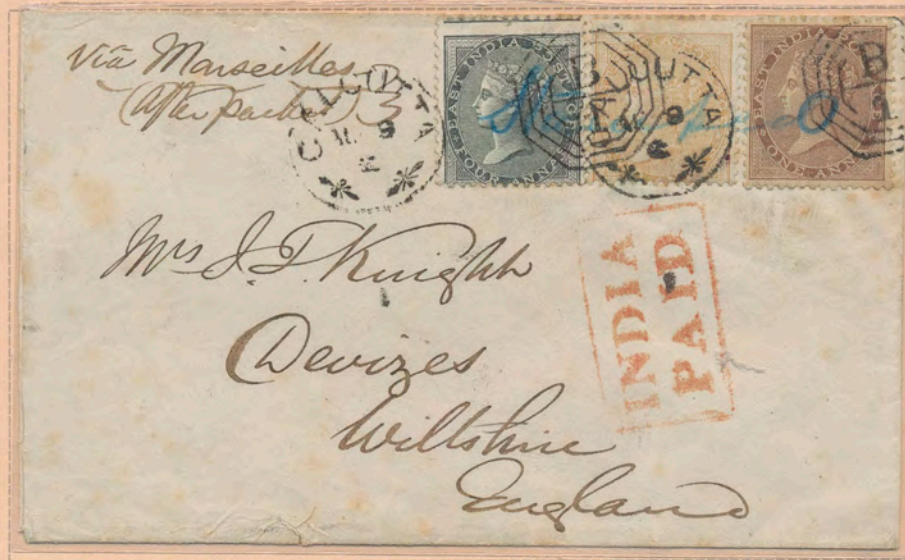 Via Marseilles
(After packet) 3
CALCUTTA
EAST INDIA POSTAGE
FOUR ANNAS
B
CALCUTTA
EAST INDIA POSTAGE
ONE ANNA
B
1
INDIA
PAID
Mrs J. T. Knight
Devizes
Wiltshire
England